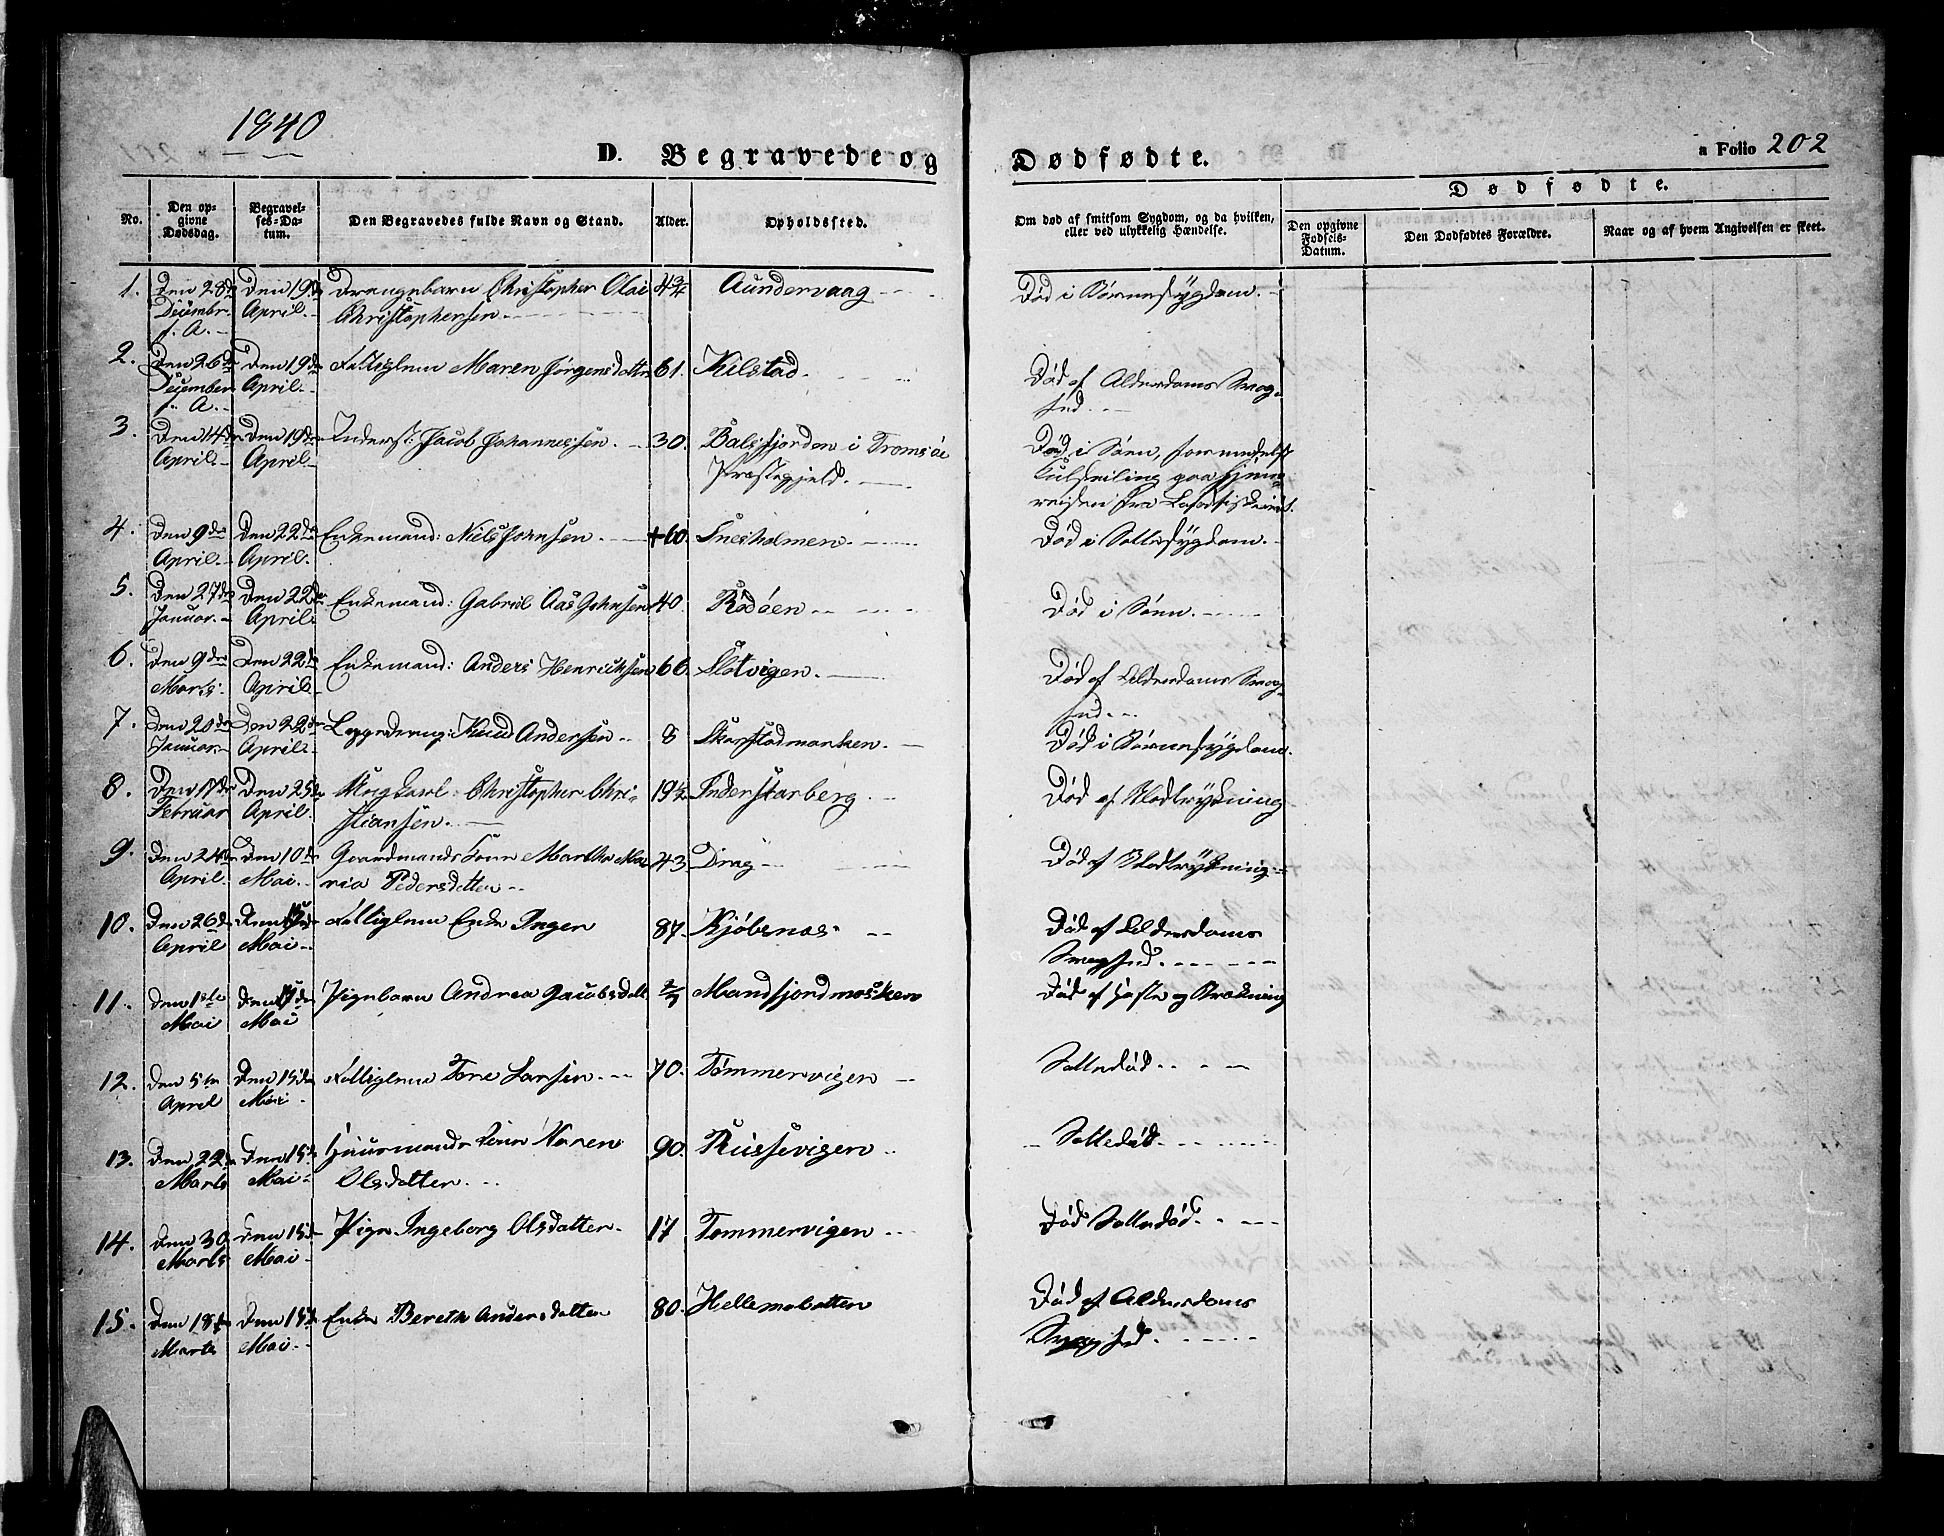 1840
D. Begravede og Dødfødte.
a Folio 202
No.
Den opgivne Dødsdag.
Begravelses-Datum.
Den Begravedes fulde Navn og Stand.
Alder.
Opholdssted.
Om død af smitsom Sygdom, og da hvilken, eller ved ulykkelig Hændelse.
Dødfødte.
Den opgivne Fødsels-Datum.
Den Dødfødtes Forældre.
Naar og af hvem Angivelsen er skeet.
1. Den 28de Den 19de Drengebarn Christopher Olai Aundervaag Død i Børnesygdom.
Decembr. April. Christophersen.
f. A.
2. Den 26de Den 19de Fattiglem Maren Jørgensdatter 61. Kilstad. Død af Alderdoms Svag-
December April. hed.
f. A.
3. Den 14de Den 19de Inderst: Jacob Johannessen. 30. Balsfjorden i Tromsöe Død i Søen, formedelst
April. April. Præstegjeld. Kulseiling paa Hjem-
reisen fra Lofotfiskeriet.
4. Den 9de Den 22de Enkemand: Niels Johnsen. Sneisholmen. Død i Sottesygdom.
April. April.
5. Den 27de Den 22de Enkemand: Gabriel Aas Johnsen 40. Rödöen Død i Søen.
Januar. April.
6. Den 9de Den 22de Enkemand: Anders Henrichsen 66. Slotvigen. Død af Alderdoms Svag-
Marts. April. hed.
7. Den 20de Den 22de Lægdedreng: Knud Andersen 8 Skarstadmarken. Død i Børnesygdom.
Januar April.
8. Den 17de Den 25de Ungkarl: Christopher Chri- 19½ Inderstarberg. Død af Blodbrydning
Februar April. stiansen.
9. Den 24de Den 10de Gaardmands Kone Martha Ma- 43. Drag Død af Blodbrydning
April. Mai. ria Pedersdatter
10. Den 26de Fattiglem Enke Inger 87. Kjöbsnæs Død af Alderdoms
April Mai. Svaghed.
11. Den 1ste Pigebarn Andrea Jacobsdatt. Mandfjordmarken Død af Hoste og Brækning
Mai Mai
12. Den 5te Den 15de Fattiglem Tore Larsen. 70. Tömmervigen Sottedød.
April Mai.
13. Den 22de Den 15de Huusmands Kone Karen 90. Russevigen Sottedød.
Marts Mai. Olsdatter.
14. Den 30 Den 15de Pige Ingeborg Olsdatter. 17 Tømmervigen Død Sottedød.
Marts Mai
15. Den 18de Den 15de Enke Bereth Andersdatter 80. Hellemobotten Død af Alderdoms
Marts Mai. Svaghed.